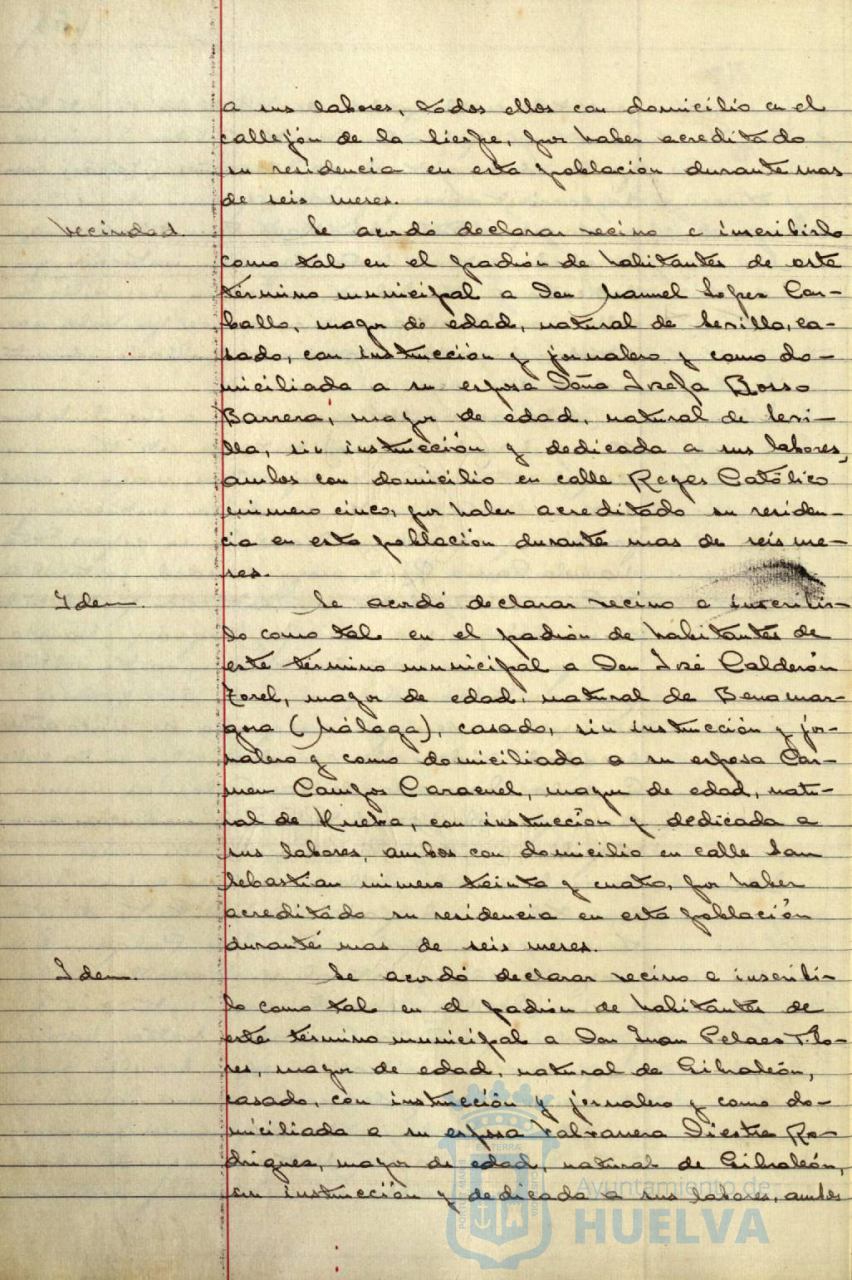 a sus labores, todos ellos con domicilio en el
callejón de la Sierpe, por haber acreditado
su residencia en esta población durante mas
de seis meses.
Vecindad. Se acordó declarar vecino e inscribirlo
como tal en el padrón de habitantes de este
término municipal a Don Manuel Lopez Car-
ballo, mayor de edad, natural de Sevilla, ca-
sado, con instrucción y jornalero y como do-
miciliada a su esposa Doña Josefa Bosso
Barrera, mayor de edad, natural de Sevi-
lla, sin instrucción y dedicada a sus labores,
ambos con domicilio en calle Reyes Católico
número cinco, por haber acreditado su residen-
cia en esta población durante mas de seis me-
ses.
Idem. Se acordó declarar vecino e inscribir-
lo como tal en el padrón de habitantes de
este término municipal a Don José Calderón
mayor de edad, natural de Benamar-
gosa (Málaga), casado, sin instrucción y jor-
nalero y como domiciliada a su esposa Car-
men Campos Caracuel, mayor de edad, natu-
ral de Huelva, con instrucción y dedicada a
sus labores, ambos con domicilio en calle San
Sebastian número treinta y cuatro, por haber
acreditado su residencia en esta población
durante mas de seis meses.
Idem. Se acordó declarar vecino e inscribir-
lo como tal en el padrón de habitantes de
este término municipal a Don Juan Pelaes Flo-
res, mayor de edad, natural de Gibraleón,
casado, con instrucción y jornalero y como do-
miciliada a su esposa Valvanera Diestre Ro-
drigues, mayor de edad, natural de Gibraleón,
sin instrucción y dedicada a sus labores, ambos
Ayuntamiento de
HUELVA